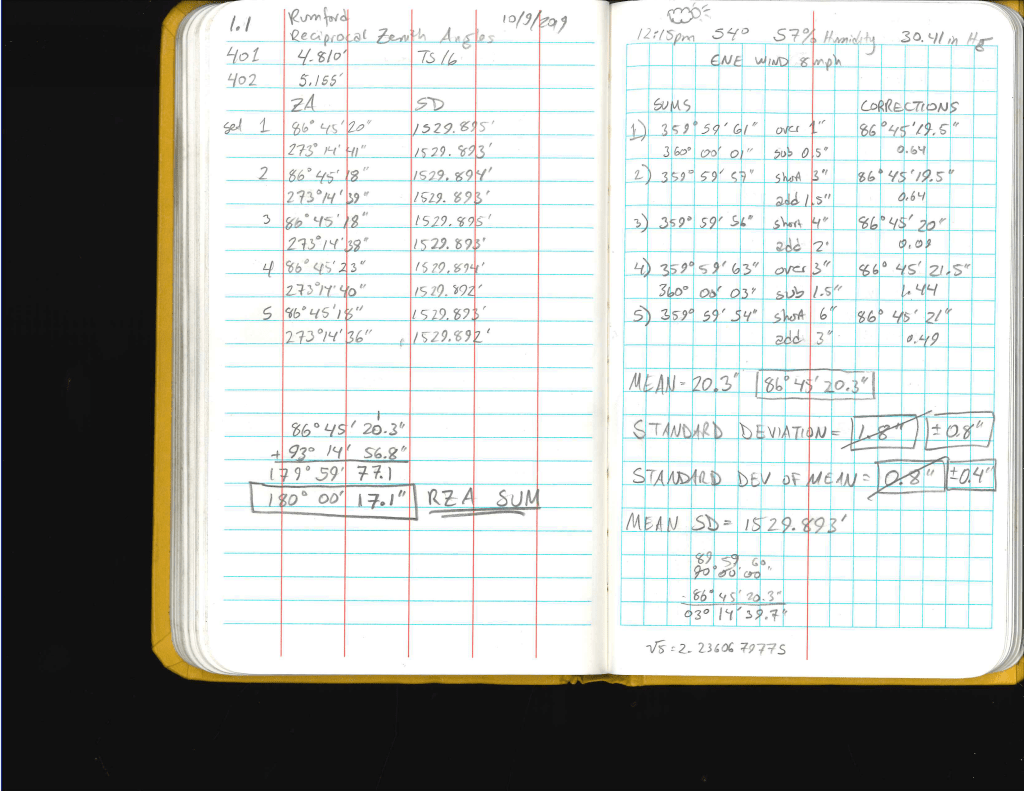 1.1 Rumford 10/9/2019
Reciprocal Zenith Angles
401 4.810' TS16
402 5.155'
ZA SD
set 1 86° 45' 20" 1529.895'
273° 14' 41" 1529.893'
2 86° 45' 18" 1529.894'
273° 14' 39" 1529.893'
3 86° 45' 18" 1529.895'
273° 14' 38" 1529.893'
4 86° 45' 23" 1529.894'
273° 14' 40" 1529.892'
5 86° 45' 18" 1529.893'
273° 14' 36" 1529.892'
1
86° 45' 20.3"
+ 93° 14' 56.8"
179° 59' 77.1
180° 00' 17.1" RZA SUM
12:15pm 54° 57% Humidity 30.41 in Hg
ENE WIND 8 mph
SUMS CORRECTIONS
1) 359° 59' 61" over 1" 86° 45' 19.5"
360° 00' 01" sub 0.5" 0.64
2) 359° 59' 57" short 3" 86° 45' 19.5"
add 1.5" 0.64
3) 359° 59' 56" short 4" 86° 45' 20"
add 2" 0.09
4) 359° 59' 63" over 3" 86° 45' 21.5"
360° 00' 03" sub 1.5" 1.44
5) 359° 59' 54" short 6" 86° 45' 21"
add 3" 0.49
MEAN = 20.3" 86° 45' 20.3"
STANDARD DEVIATION = 1.8" ± 0.8"
STANDARD DEV OF MEAN = 0.8" ±0.4"
MEAN SD = 1529.893'
89 59 60
90° 00' 00"
- 86° 45' 20.3"
03° 14' 39.7"
√5 = 2.2360679775